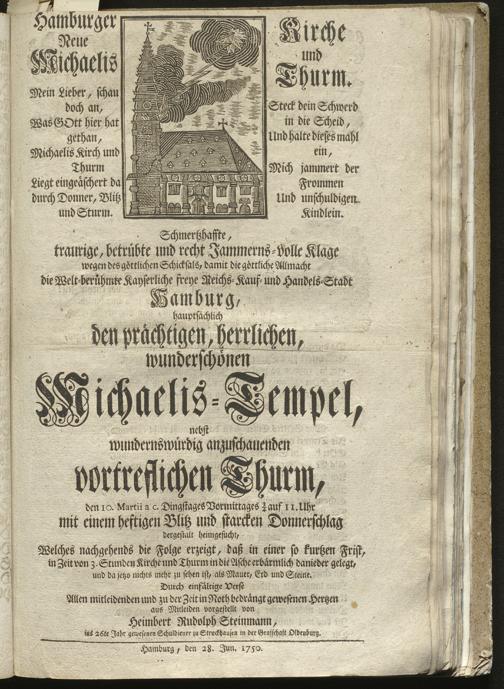 Hamburger
Neue
Michaelis
Mein Lieber, schau
doch an,
Was GOtt hier hat
gethan,
Michaelis Kirch und
Thurm
Liegt eingeäschert da
durch Donner, Blitz
und Sturm.
Kirche
und
Thurm.
Steck dein Schwerd
in die Scheid,
Und halte dieses mahl
ein,
Mich jammert der
Frommen
Und unschuldigen
Kindlein.
Schmertzhaffte,
traurige, betrübte und recht Jammerns-volle Klage
wegen des göttlichen Schicksals, damit die göttliche Allmacht
die Welt-berühmte Kayserliche freye Reichs- Kauf- und Handels-Stadt
Hamburg,
hauptsächlich
den prächtigen, herrlichen,
wunderschönen
Michaelis-Tempel,
nebst
wundernswürdig anzuschauenden
vortreflichen Thurm,
den 10. Martii a c. Dingstages Vormittages ¾ auf 11. Uhr
mit einem heftigen Blitz und starcken Donnerschlag
dergestalt heimgesucht,
Welches nachgehends die Folge erzeigt, daß in einer so kurtzen Frist,
in Zeit von 3. Stunden Kirche und Thurm in die Asche erbärmlich danieder gelegt,
und da jetzo nichts mehr zu sehen ist, als Mauer, Erd und Steine.
Durch einfältige Verse
Allen mitleidenden und zu der Zeit in Noth bedrängt gewesenen Hertzen
aus Mitleiden vorgestellt von
Heimbert Rudolph Steinmann,
ins 26te Jahr gewesenen Schuldiener zu Struckhausen in der Grafschaft Oldenburg.
Hamburg, den 28. Jun. 1750.